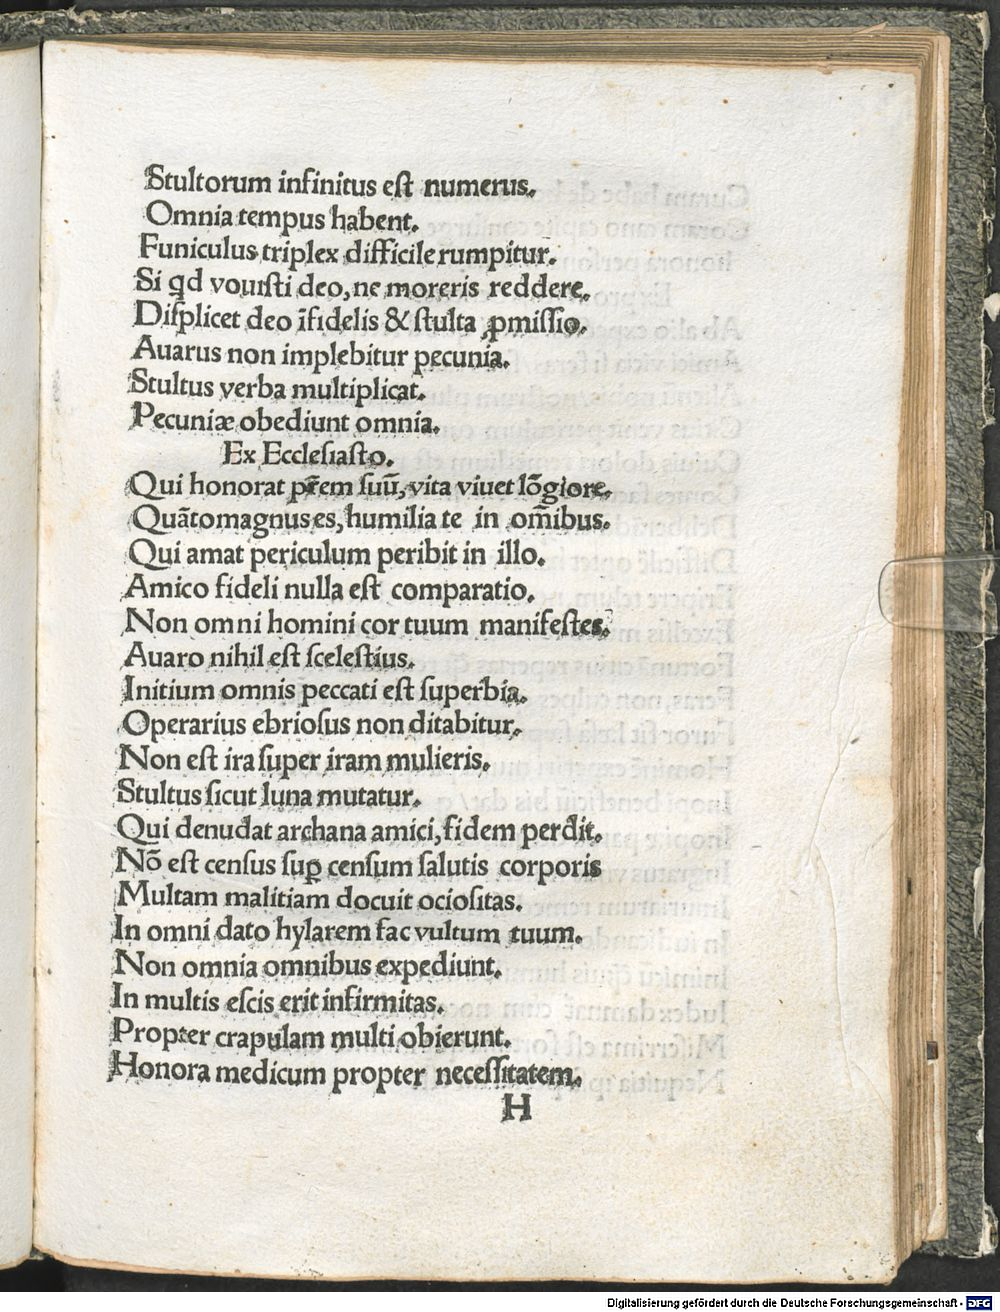 Stultorum infinitus est numerus.
Omnia tempus habent.
Funiculus triplex difficile rumpitur.
Si qd vouisti deo, ne moreris reddere.
Displicet deo ĩfidelis & stulta ꝓmissio.
Auarus non implebitur pecunia.
Stultus verba multiplicat.
Pecuniæ obediunt omnia.
Ex Ecclesiasto.
Qui honorat pr̃em suũ, vita viuet lõgiore.
Quãto magnus es, humilia te in om̃ibus.
Qui amat periculum peribit in illo.
Amico fideli nulla est comparatio.
Non omni homini cor tuum manifestes.
Auaro nihil est scelestius.
Initium omnis peccati est superbia.
Operarius ebriosus non ditabitur.
Non est ira super iram mulieris.
Stultus sicut luna mutatur.
Qui denudat archana amici, fidem perdit.
Nõ est census suꝑ censum salutis corporis
Multam malitiam docuit ociositas.
In omni dato hylarem fac vultum tuum.
Non omnia omnibus expediunt.
In multis escis erit infirmitas.
Propter crapulam multi obierunt.
Honora medicum propter necessitatem.
H
Digitalisierung gefördert durch die Deutsche Forschungsgemeinschaft - DFG